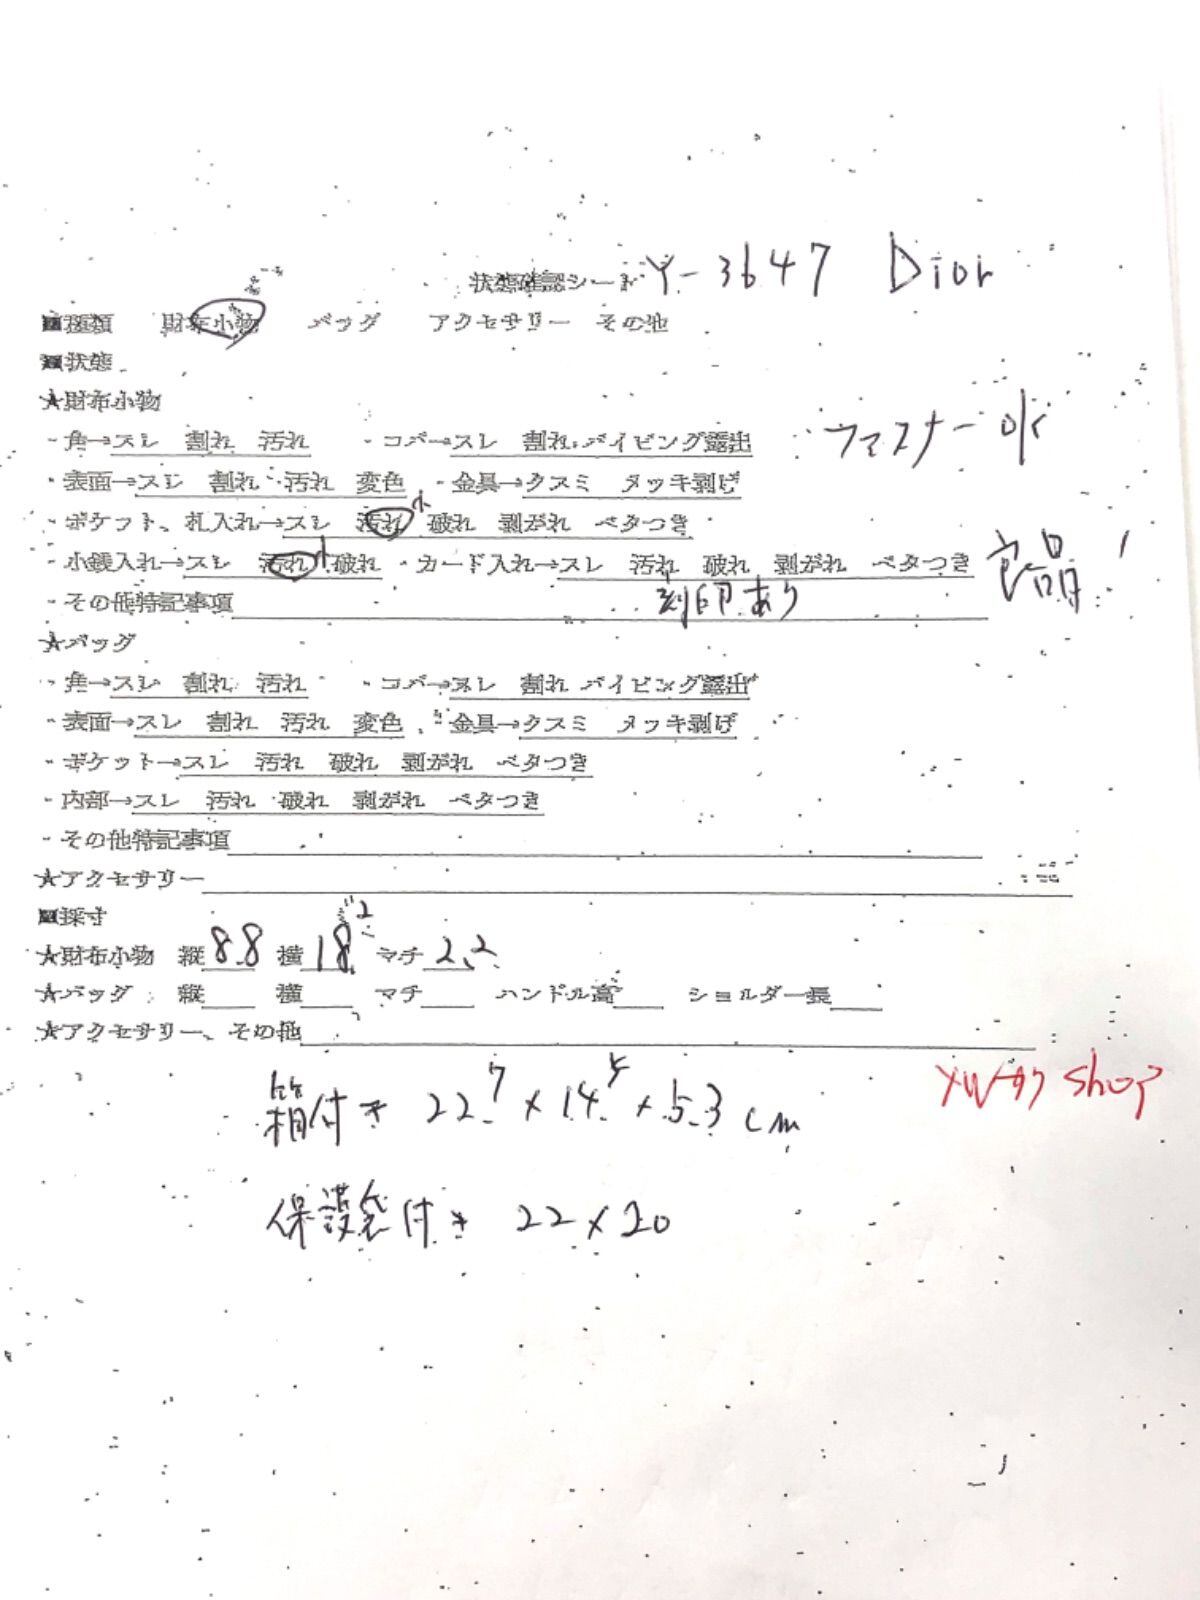 状態確認シート Y-3647 Dior
■種類 財布小物 バッグ アクセサリー その他
■状態
★財布小物
・角→スレ 割れ 汚れ ・コバ→スレ 割れ パイピング露出 ファスナー ok
・表面→スレ 割れ 汚れ 変色 ・金具→クスミ メッキ剥げ
・ポケット、札入れ→スレ 汚れ小 破れ 剥がれ ベタつき
・小銭入れ→スレ 汚れ小 破れ ・カード入れ→スレ 汚れ 破れ 剥がれ ベタつき 良品!
・その他特記事項 刻印あり
★バッグ
・角→スレ 割れ 汚れ ・コバ→スレ 割れ パイピング露出
・表面→スレ 割れ 汚れ 変色 ・金具→クスミ メッキ剥げ
・ポケット→スレ 汚れ 破れ 剥がれ ベタつき
・内部→スレ 汚れ 破れ 剥がれ ベタつき
・その他特記事項
★アクセサリー
■採寸
★財布小物 縦8.8 横18.2 マチ2.2
★バッグ 縦 横 マチ ハンドル高 ショルダー長
★アクセサリー、その他
箱付* 22.7×14.5×5.3cm
shop
保護袋付* 22×20